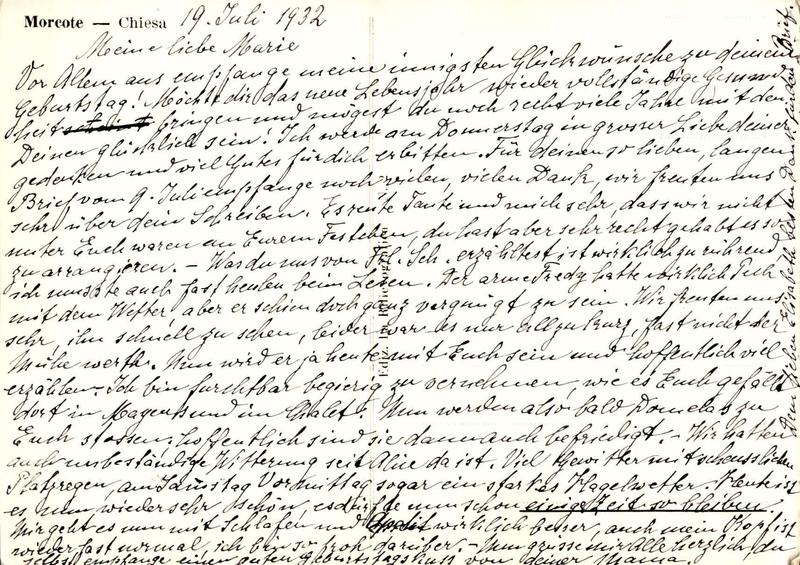 Morcote — Chiesa 19. Juli 1932
Meine liebe Marie
Vor Allem aus empfange meine innigsten Glückwünsche zu deinem
Geburtstag! Möchte dir das neue Lebensjahr wieder vollständige Gesund-
heit bringen und mögest du noch recht viele Jahre mit den
Deinen glücklich sein! Ich werde am Donnerstag in grosser Liebe deiner
gedenken und viel Gutes für dich erbitten. Für deinen so lieben, langen
Brief vom 9. Juli empfange noch vielen, vielen Dank, wir freuten uns
sehr über dein Schreiben. Es reute Tante und mich sehr, dass wir nicht
unter Euch waren an Eurem Festleben, du hast aber sehr recht gehabt es so
zu arrangieren. – Was du uns von Frl. Sch. erzähltest ist wirklich zu rührend
ich musste auch fast heulen beim Lesen. Der arme Fredy hatte wirklich Pech
mit dem Wetter aber er schien doch ganz vergnügt zu sein. Wir freuten uns
sehr, ihn schnell zu sehen, leider war es nur allzu kurz, fast nicht der
Mühe werth. Nun wird er ja heute mit Euch sein und hoffentlich viel
erzählen. Ich bin furchtbar begierig zu vernehmen, wie es Euch gefällt
dort in und im Chalet. Nun werden also bald zu
Euch stossen, hoffentlich sind sie dann auch befriedigt. – Wir hatten
auch unbeständige Witterung seit da ist. Viel Gewitter mit scheusslichen
Platzregen, am Samstag Vormittag sogar ein starkes Hagelwetter. Heute ist
es nun wieder sehr schön, es dürfte nun schon einige Zeit so bleiben
Mir geht es nun mit Schlafen und wirklich besser, auch mein Kopf ist
wieder fast normal, ich bin so froh darüber. – Nun grüsse mir Alle herzlich, du
selbst empfange einen guten Geburtstagskuss von deiner Mama.
Der lieben Elisabeth besten Dank für den Brief.
Ediz.